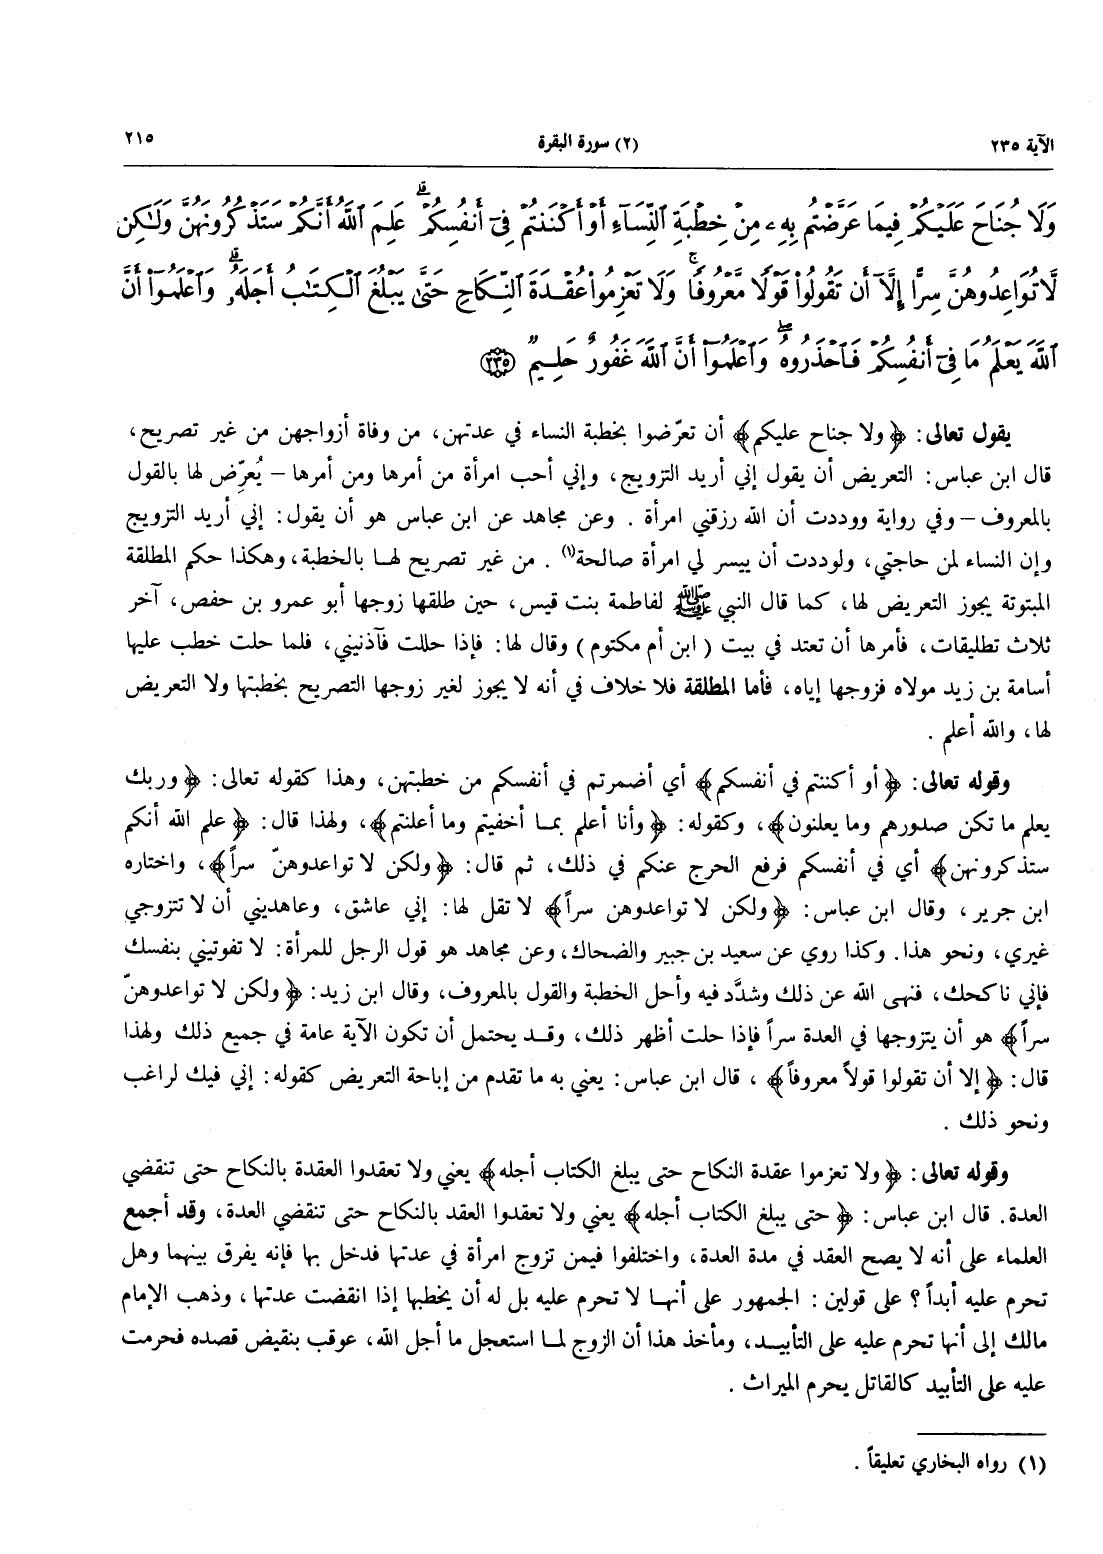 الآية ٢٣٥
(٢) سورة البقرة
٢١٥
وَلَا جُنَاحَ عَلَيْكُمْ فِيمَا عَرَّضْتُم بِهِۦ مِنْ خِطْبَةِ ٱلنِّسَآءِ أَوْ أَكْنَنتُمْ فِىٓ أَنفُسِكُمْ ۚ عَلِمَ ٱللَّهُ أَنَّكُمْ سَتَذْكُرُونَهُنَّ وَلَـٰكِن
لَّا تُوَاعِدُوهُنَّ سِرًّا إِلَّآ أَن تَقُولُوا۟ قَوْلًا مَّعْرُوفًا ۚ وَلَا تَعْزِمُوا۟ عُقْدَةَ ٱلنِّكَاحِ حَتَّىٰ يَبْلُغَ ٱلْكِتَـٰبُ أَجَلَهُۥ ۚ وَٱعْلَمُوٓا۟ أَنَّ
ٱللَّهَ يَعْلَمُ مَا فِىٓ أَنفُسِكُمْ فَٱحْذَرُوهُ ۚ وَٱعْلَمُوٓا۟ أَنَّ ٱللَّهَ غَفُورٌ حَلِيمٌ ﴿٢٣٥﴾
يقول تعالى: ﴿ولا جناح عليكم﴾ أن تعرّضوا بخطبة النساء في عدتهن، من وفاة أزواجهن من غير تصريح،
قال ابن عباس: التعريض أن يقول إني أريد التزويج، وإني أحب امرأة من أمرها ومن أمرها – يُعرِّض لها بالقول
بالمعروف – وفي رواية وودت أن الله رزقني امرأة . وعن مجاهد عن ابن عباس هو أن يقول: إني أريد التزويج
وإن النساء لمن حاجتي، ولوددت أن ييسر لي امرأة صالحة(١) . من غير تصريح لهـا بالخطبة، وهكذا حكم المطلقة
المبتوتة يجوز التعريض لها، كما قال النبي ﷺ لفاطمة بنت قيس، حين طلقها زوجها أبو عمرو بن حفص، آخر
ثلاث تطليقات، فأمرها أن تعتد في بيت ( ابن أم مكتوم ) وقال لها: فإذا حللت فآذنيني، فلما حلت خطب عليها
أسامة بن زيد مولاه فزوجها إياه، فأما المطلقة فلا خلاف في أنه لا يجوز لغير زوجها التصريح بخطبتها ولا التعريض
لها، والله أعلم .
وقوله تعالى: ﴿أو أكننتم في أنفسكم﴾ أي أضمرتم في أنفسكم من خطبتهن، وهذا كقوله تعالى: ﴿وربك
يعلم ما تكن صدورهم وما يعلنون﴾، وكقوله: ﴿وأنا أعلم بمـا أخفيتم وما أعلنتم﴾، ولهذا قال: ﴿علم الله أنكم
ستذكرونهن﴾ أي في أنفسكم فرفع الحرج عنكم في ذلك، ثم قال: ﴿ولكن لا تواعدوهنّ سراً﴾، واختاره
ابن جرير، وقال ابن عباس: ﴿ولكن لا تواعدوهن سراً﴾ لا تقل لها: إني عاشق، وعاهديني أن لا تتزوجي
غيري، ونحو هذا. وكذا روي عن سعيد بن جبير والضحاك، وعن مجاهد هو قول الرجل للمرأة: لا تفوتيني بنفسك
فإني ناكحك، فنهى الله عن ذلك وشدَّد فيه وأحل الخطبة والقول بالمعروف، وقال ابن زيد: ﴿ولكن لا تواعدوهنّ
سراً﴾ هو أن يتزوجها في العدة سراً فإذا حلت أظهر ذلك، وقـد يحتمل أن تكون الآية عامة في جميع ذلك ولهذا
قال: ﴿إلا أن تقولوا قولاً معروفاً﴾ ، قال ابن عباس: يعني به ما تقدم من إباحة التعريض كقوله: إني فيك لراغب
ونحو ذلك .
وقوله تعالى: ﴿ولا تعزموا عقدة النكاح حتى يبلغ الكتاب أجله﴾ يعني ولا تعقدوا العقدة بالنكاح حتى تنقضي
العدة. قال ابن عباس: ﴿حتى يبلغ الكتاب أجله﴾ يعني ولا تعقدوا العقد بالنكاح حتى تنقضي العدة، وقد أجمع
العلماء على أنه لا يصح العقد في مدة العدة، واختلفوا فيمن تزوج امرأة في عدتها فدخل بها فإنه يفرق بينهما وهل
تحرم عليه أبداً ؟ على قولين : الجمهور على أنهـا لا تحرم عليه بل له أن يخطبها إذا انقضت عدتها، وذهب الإمام
مالك إلى أنها تحرم عليه على التأبيـد، ومأخذ هذا أن الزوج لمـا استعجل ما أجل الله، عوقب بنقيض قصده فحرمت
عليه على التأبيد كالقاتل يحرم الميراث .
(١) رواه البخاري تعليقاً .